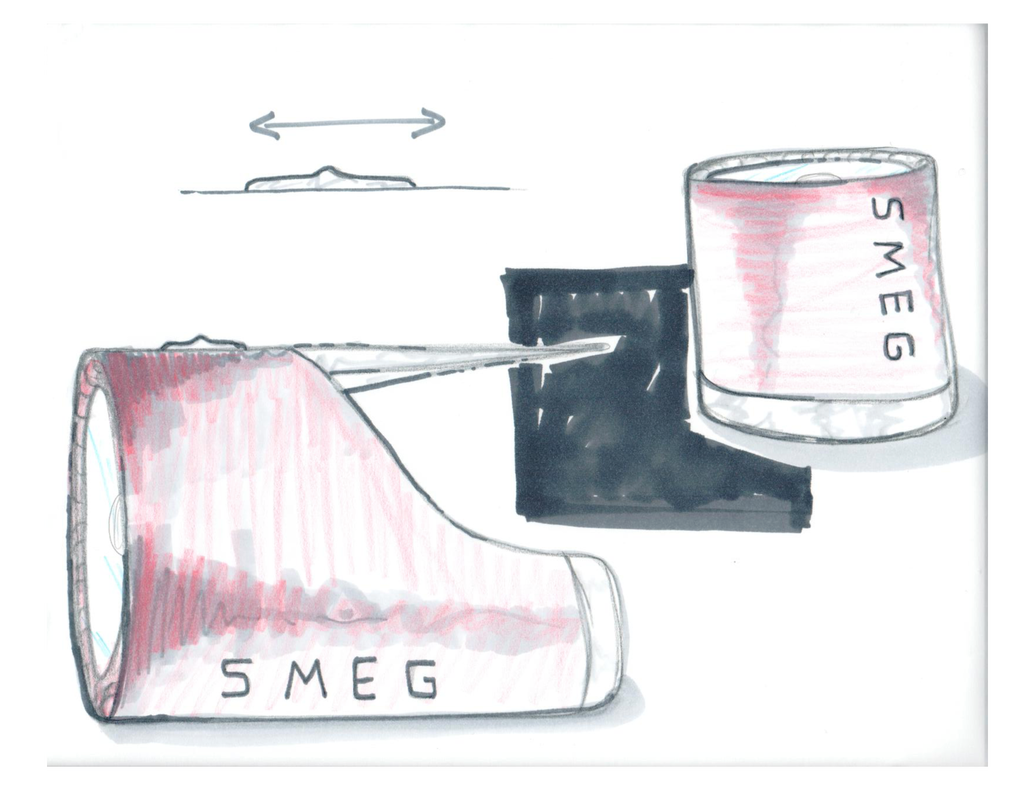 SMEG
SMEG